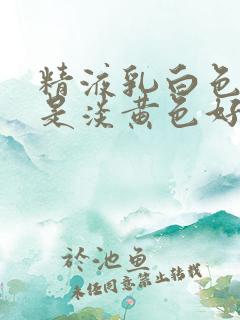 精液乳白色
是淡黄色好
於池鱼
未经同意禁止转载